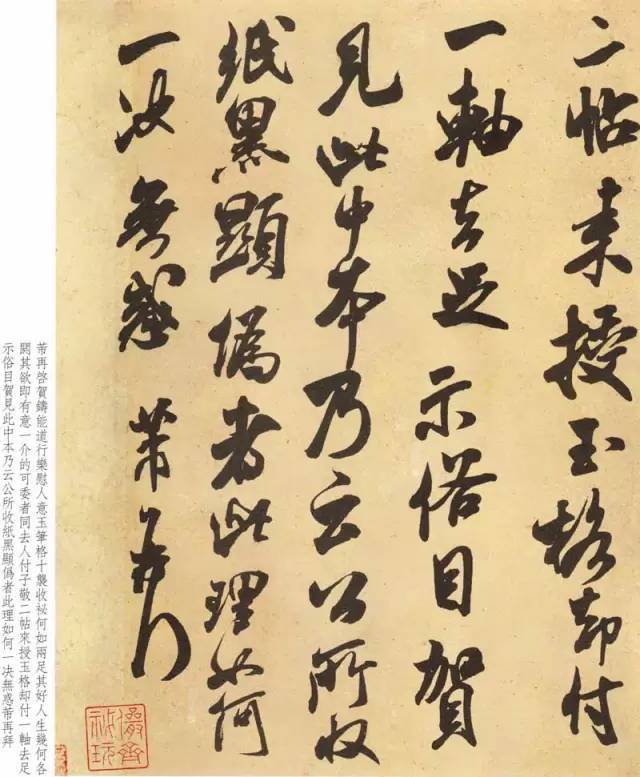 二帖来授玉格却付
一軸去足示俗目賀
見此中本乃云公所收
紙黑顯偽者此理如何
一决無惑芾再拜
儼齋
祕玩
芾再啓賀鑄能道行樂慰人意玉筆格十襲收祕何如兩足其好人生幾何各
閼其欲即有意一介的可委者同去人付子敬二帖來授玉格却付一軸去足
示俗目賀見此中本乃云公所收紙黑顯僞者此理如何一决無惑芾再拜